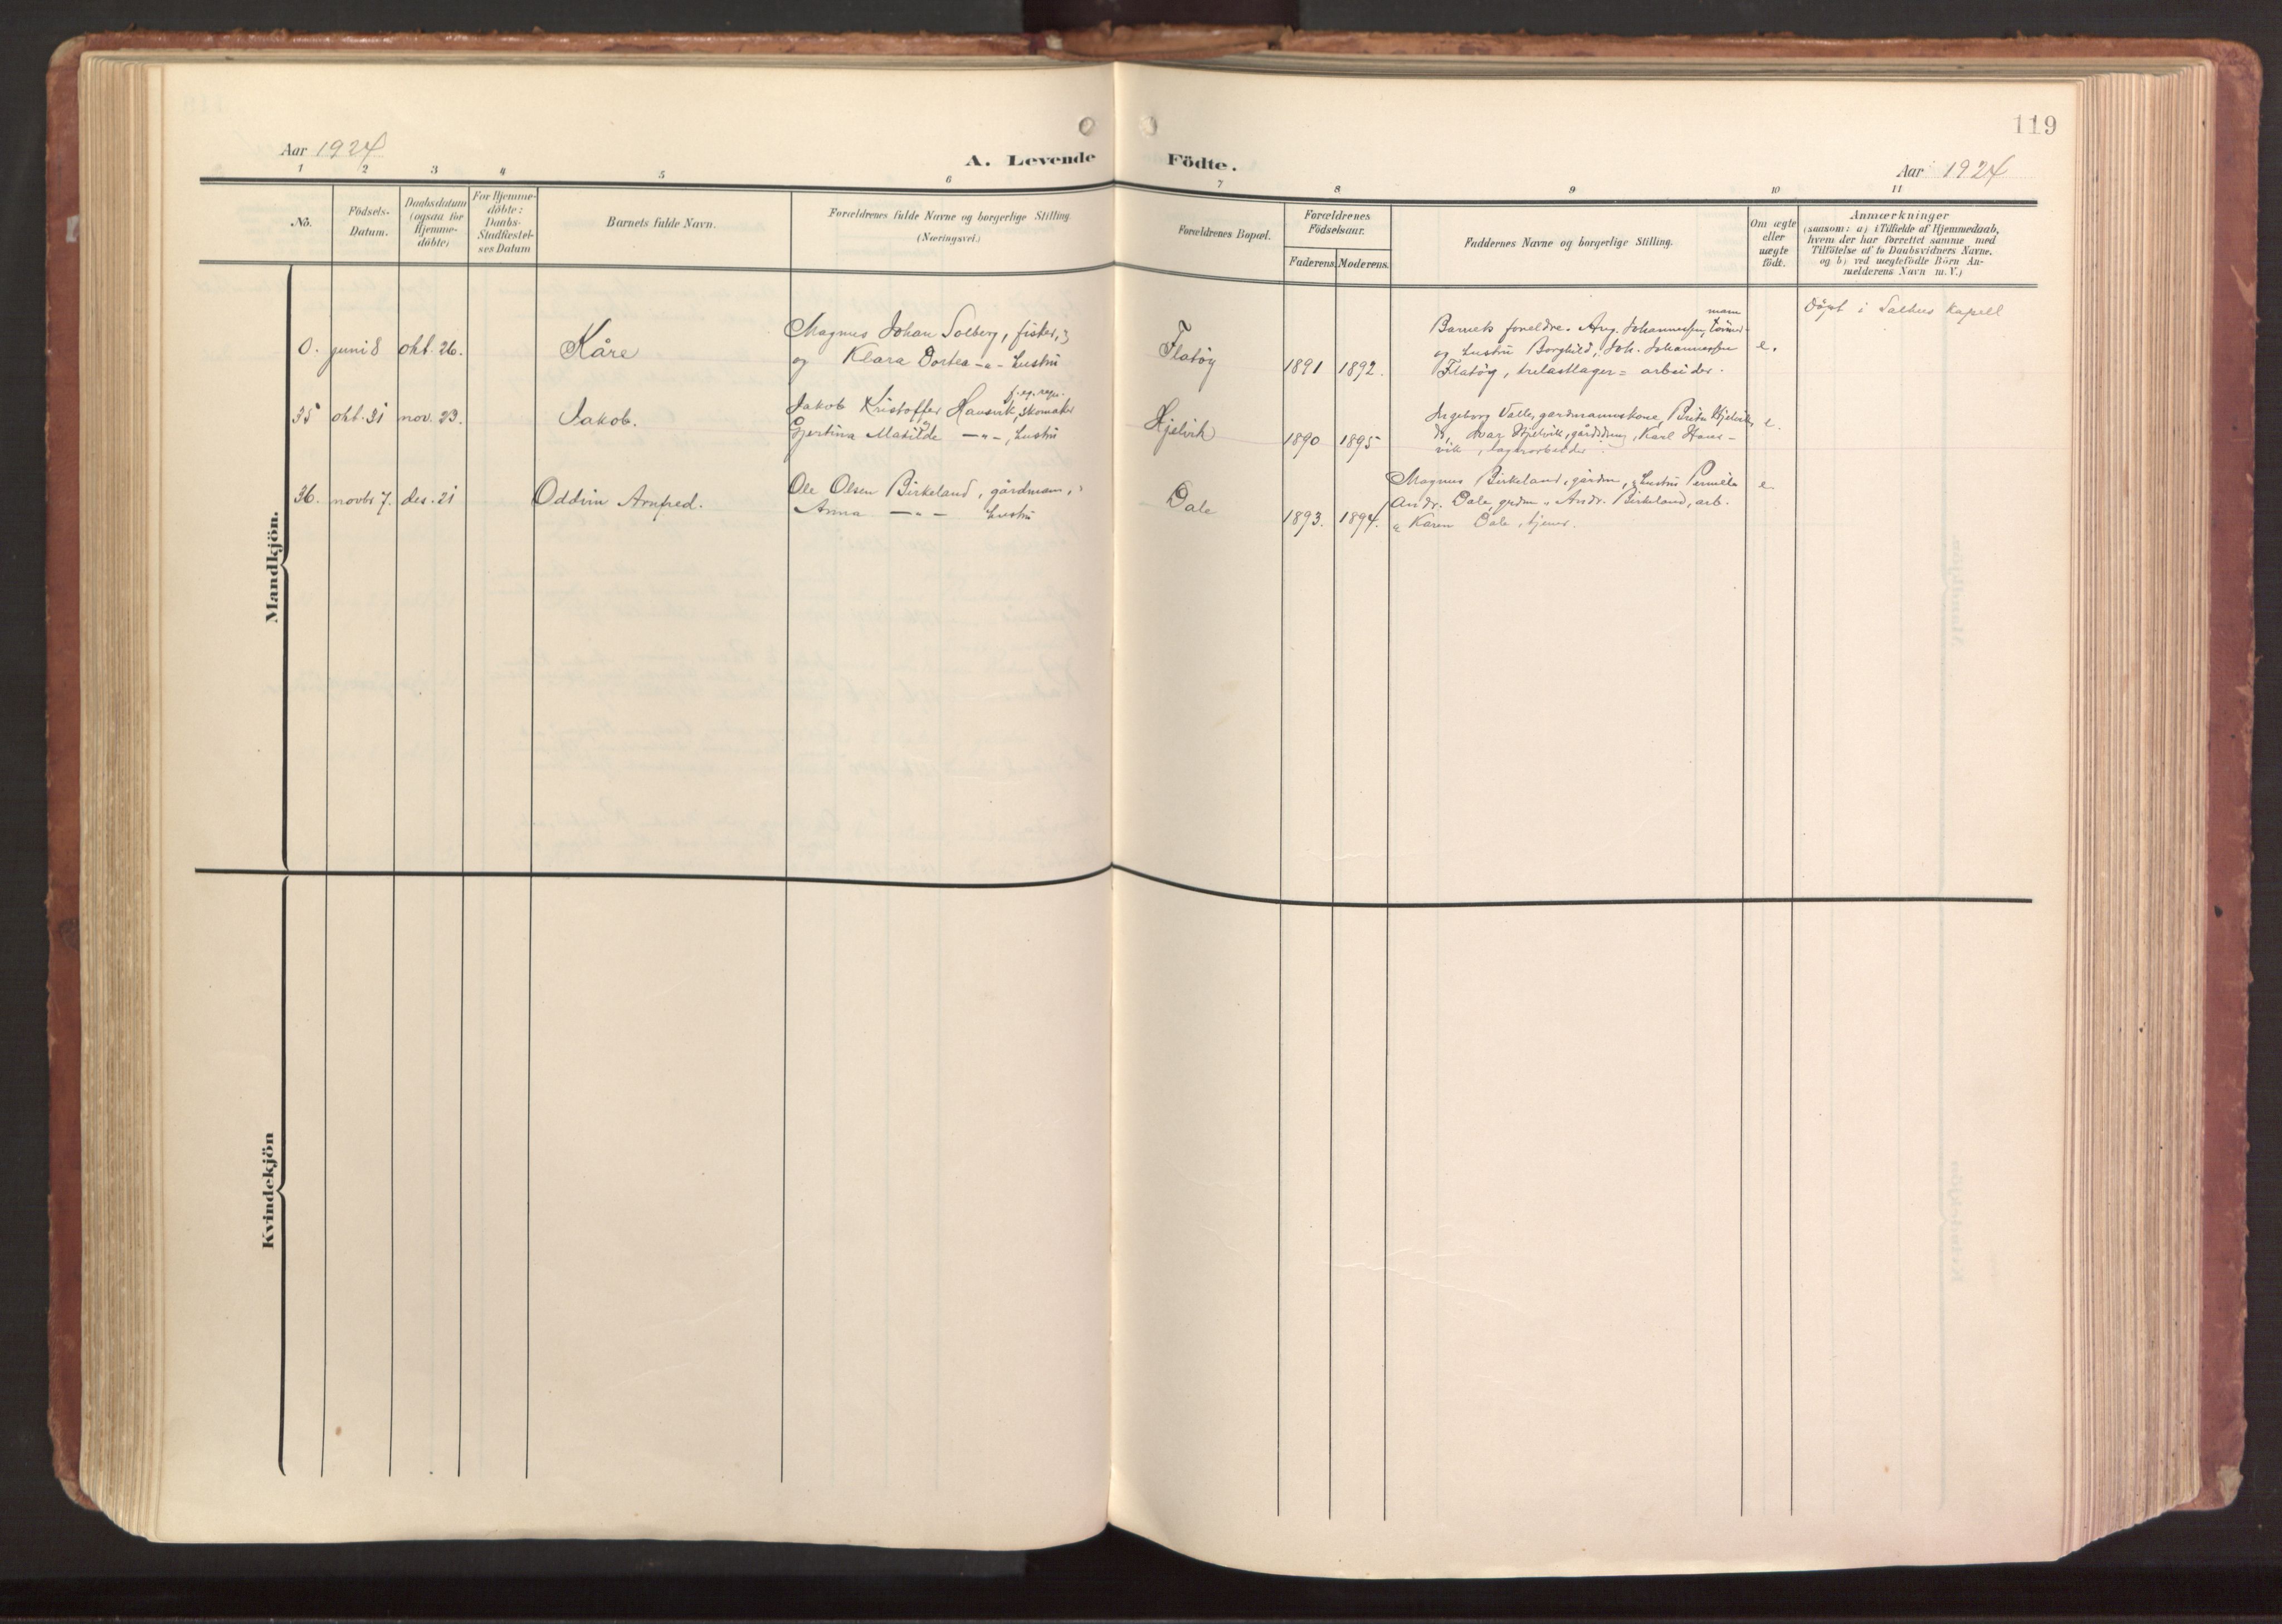 119
Aar 1924
A. Levende Födte.
Aar 1924
1 2 3 4 5 6 7 8 9 10 11
No.
Födsels-
Datum.
Daabsdatum
(ogsaa for
Hjemme-
döbte)
For Hjemme-
döbte:
Daabs-
Stadfæstel-
ses Datum
Barnets fulde Navn.
Forældrenes fulde Navne og borgerlige Stilling.
(Næringsvei.)
Forældrenes Bopæl.
Forældrenes
Födselsaar.
Faderens. Moderens.
Faddernes Navne og borgerlige Stilling.
Om ægte
eller
uægte
födt.
Anmærkninger
(saasom: a) i Tilfælde af Hjemmedaab,
hvem der har forrettet samme med
Tilföielse af to Daabsvidners Navne.
og b) ved uægtefödte Börn An-
melderens Navn m. V.)
Mandkjön.
0. juni 8 okt. 26.
Kåre
Magnus Johan Solberg, fisker,
og Klara Dortea -"- hustru
Flatöy
1891 1892.
mann
Barnets foreldre. Aug. Johannessen,
og hustru Borghild, Joh. Johannessen
Flatöy, trelastlager= arbeider.
e.
döpt i Salhus kapell
35 okt. 31 nov. 23.
Jakob.
Jakob Kristoffer Hausvik, skomaker
Gjertina Matilde -"-, hustru
Hjelvik
1890 1895
Ingeborg Valle, gardmannskone, Brita Hjelvik,
Ivar Hjelvik, Karl Haus-
vik, lagerarbeider.
e.
36. novbr 7. des. 21
Oddvin Arnfred.
Ole Olsen Birkeland, gårdmann,
Anna -"- hustru
Dale
1893. 1894.
Magnus Birkeland, gårdm, hustru Pernille
Andr. Dale, grdm, Andr. Birkeland, arb.
Karen Dale, tjener.
e.
Kvindekjön